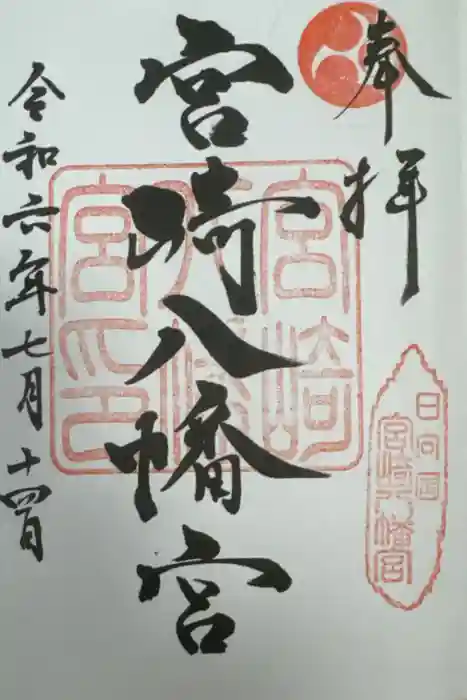 奉拝
宮崎八幡宮
令和六年七月十四日
宮崎
八幡
宮之印
日向国
宮崎八幡宮